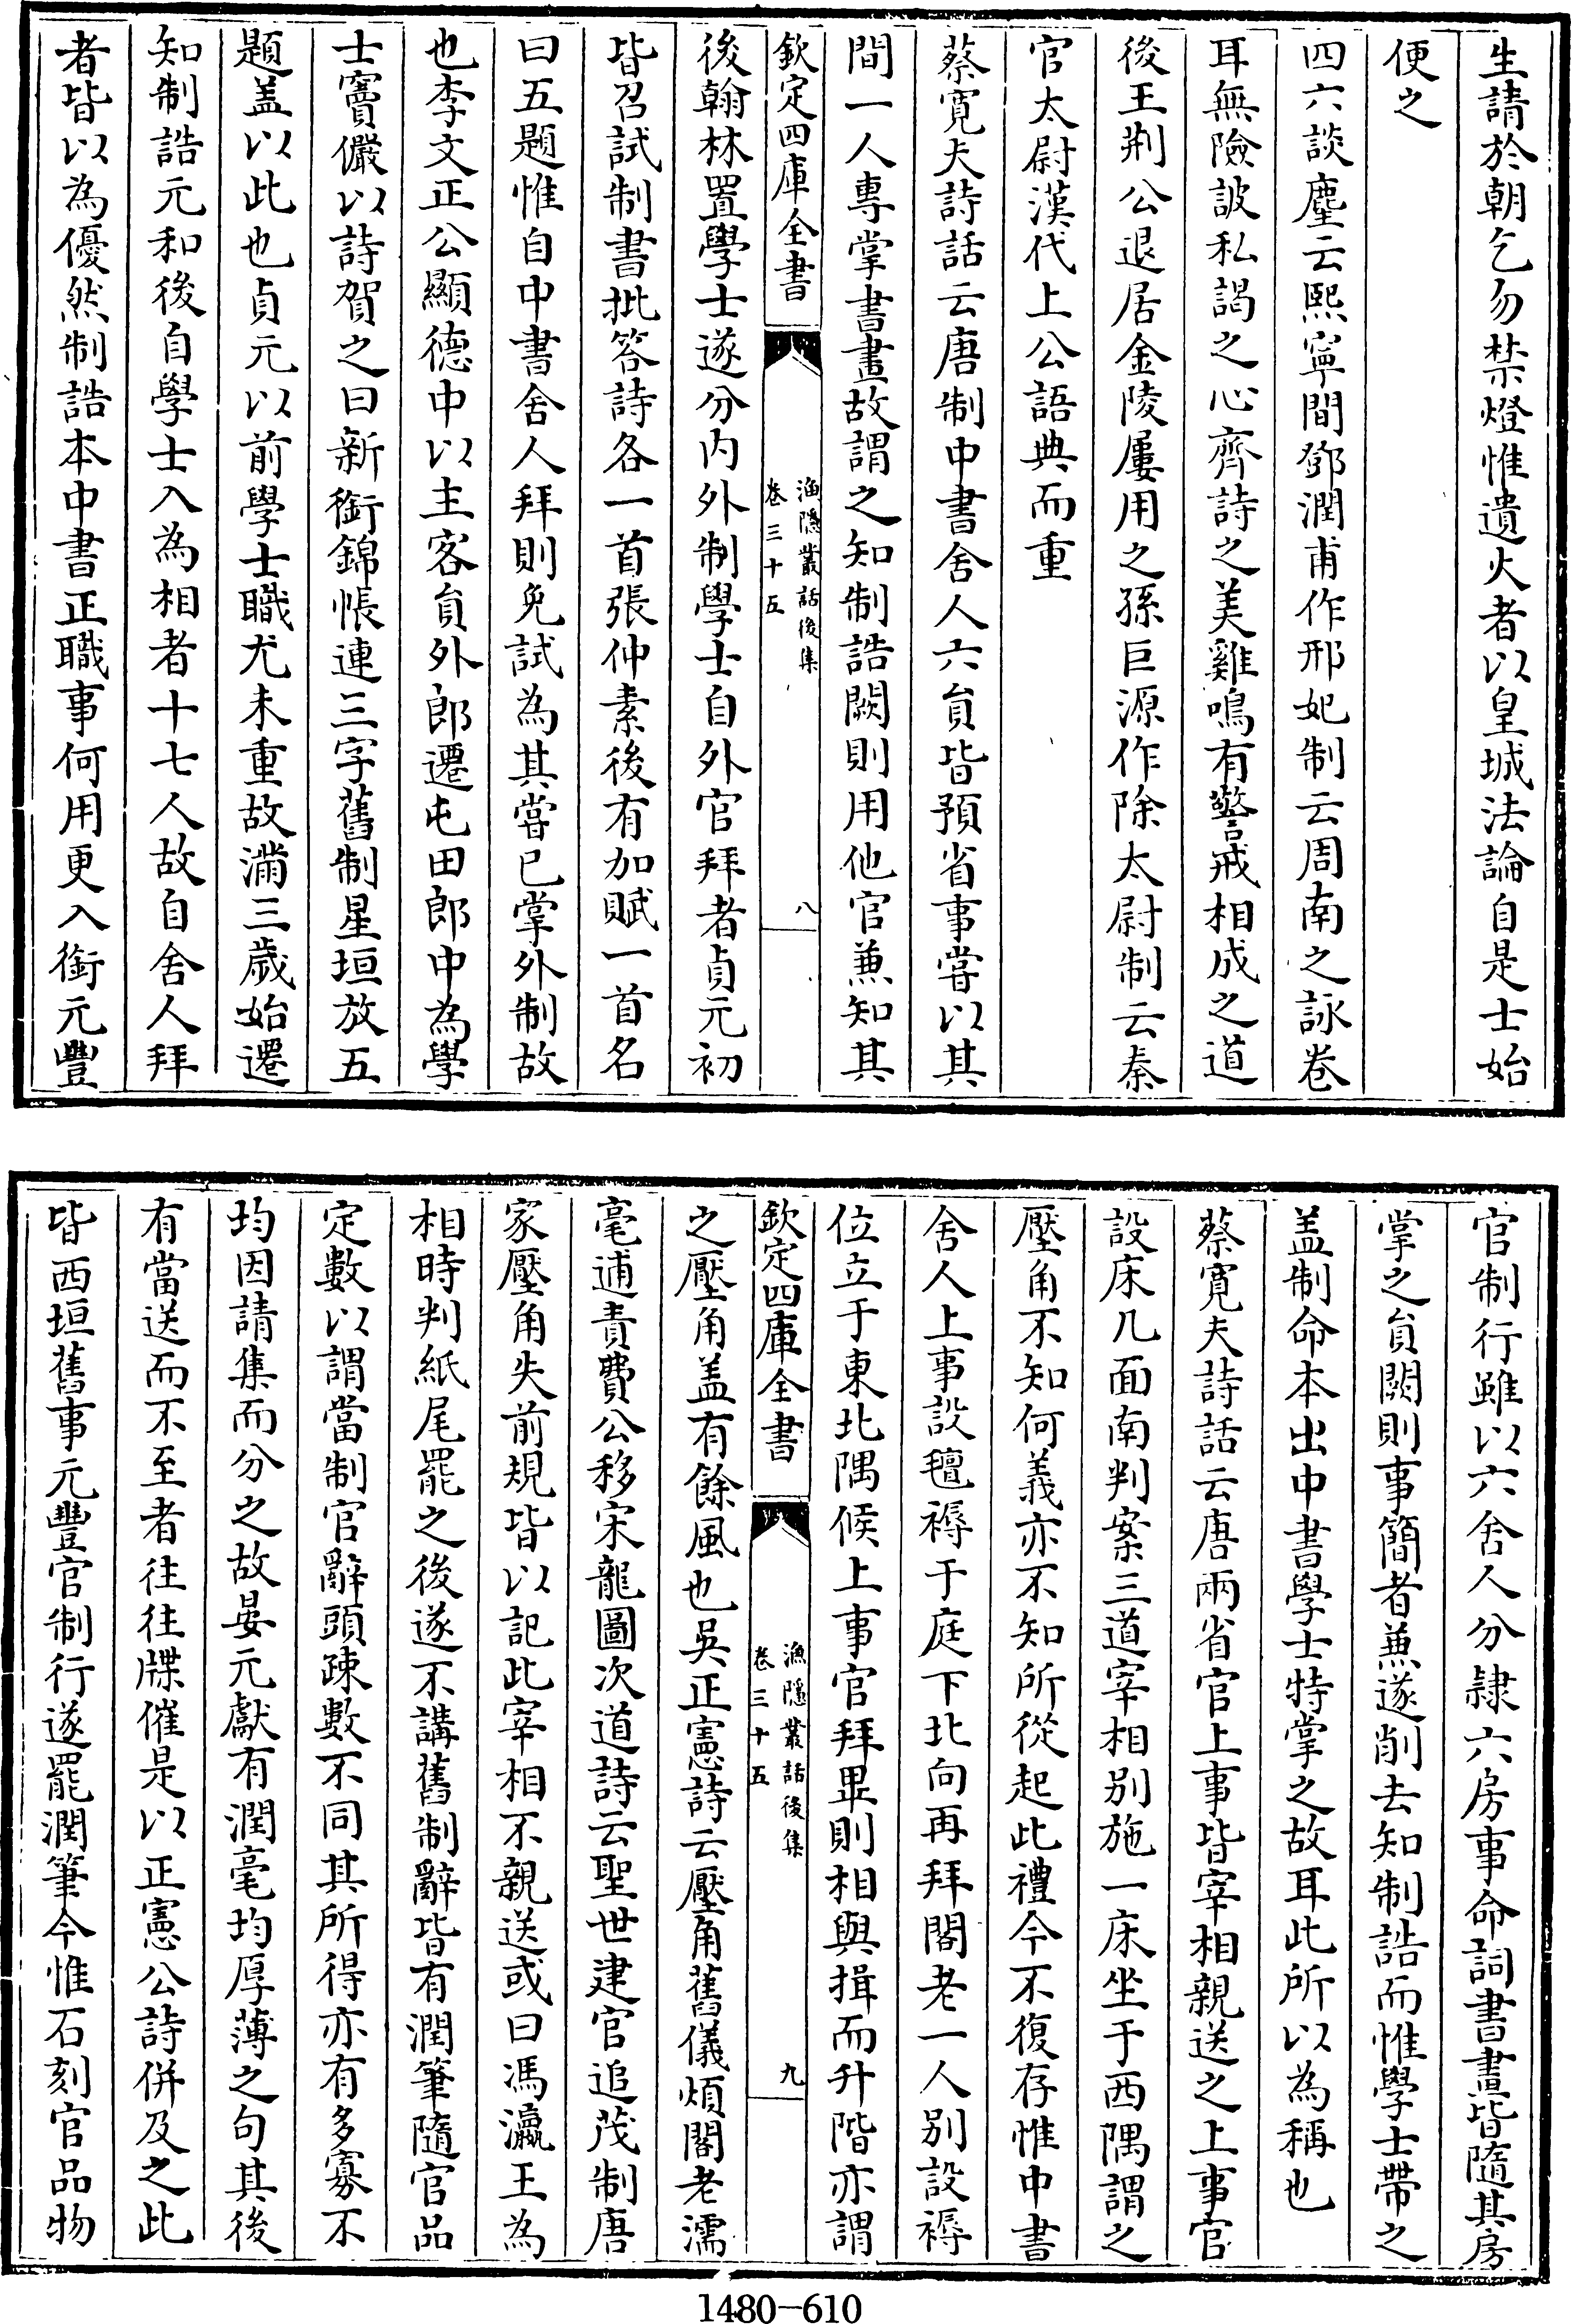 生請於朝乞勿禁燈惟遺火者以皇城法論自是士始
便之
四六談麈云熙寧間鄧潤甫作邢妃制云周南之詠卷
耳無險詖私謁之心齊詩之美雞鳴有警戒相成之道
後王荆公退居金陵屢用之孫巨源作除太尉制云秦
官太尉漢代上公語典而重
蔡寬夫詩話云唐制中書舍人六員皆預省事嘗以其
間一人專掌書畫故謂之知制誥闕則用他官兼知其
欽定四庫全書
漁隱叢話後集
卷三十五
八
後翰林置學士遂分内外制學士自外官拜者貞元初
皆召試制書批答詩各一首張仲素後有加賦一首名
曰五題惟自中書舍人拜則免試為其嘗已掌外制故
也李文正公顯德中以主客員外郎遷屯田郎中為學
士竇儼以詩賀之曰新銜錦帳連三字舊制星垣放五
題盖以此也貞元以前學士職尤未重故滿三歲始遷
知制誥元和後自學士入為相者十七人故自舍人拜
者皆以為優然制誥本中書正職事何用更入銜元豐
官制行雖以六舍人分隷六房事命詞書畫皆隨其房
掌之員闕則事簡者兼遂削去知制誥而惟學士帶之
盖制命本出中書學士特掌之故耳此所以為稱也
蔡寬夫詩話云唐兩省官上事皆宰相親送之上事官
設床几面南判案三道宰相别施一床坐于西隅謂之
壓角不知何義亦不知所從起此禮今不復存惟中書
舍人上事設氊褥于庭下北向再拜閣老一人别設褥
位立于東北隅候上事官拜畢則相與揖而升階亦謂
欽定四庫全書
漁隱叢話後集
卷三十五
九
之壓角盖有餘風也吳正憲詩云壓角舊儀煩閣老濡
毫逋責費公移宋龍圖次道詩云聖世建官追茂制唐
家壓角失前規皆以記此宰相不親送或曰馮瀛王為
相時判紙尾罷之後遂不講舊制辭皆有潤筆隨官品
定數以謂當制官辭頭疎數不同其所得亦有多寡不
均因請集而分之故晏元獻有潤毫均厚薄之句其後
有當送而不至者往往牒催是以正憲公詩併及之此
皆西垣舊事元豐官制行遂罷潤筆今惟石刻官品物
1480-610